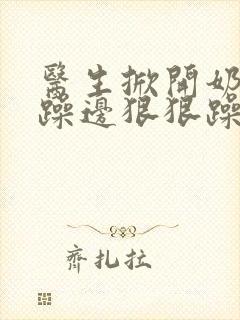 醫生掀開奶
躁邊狠狠躁
齊扎拉